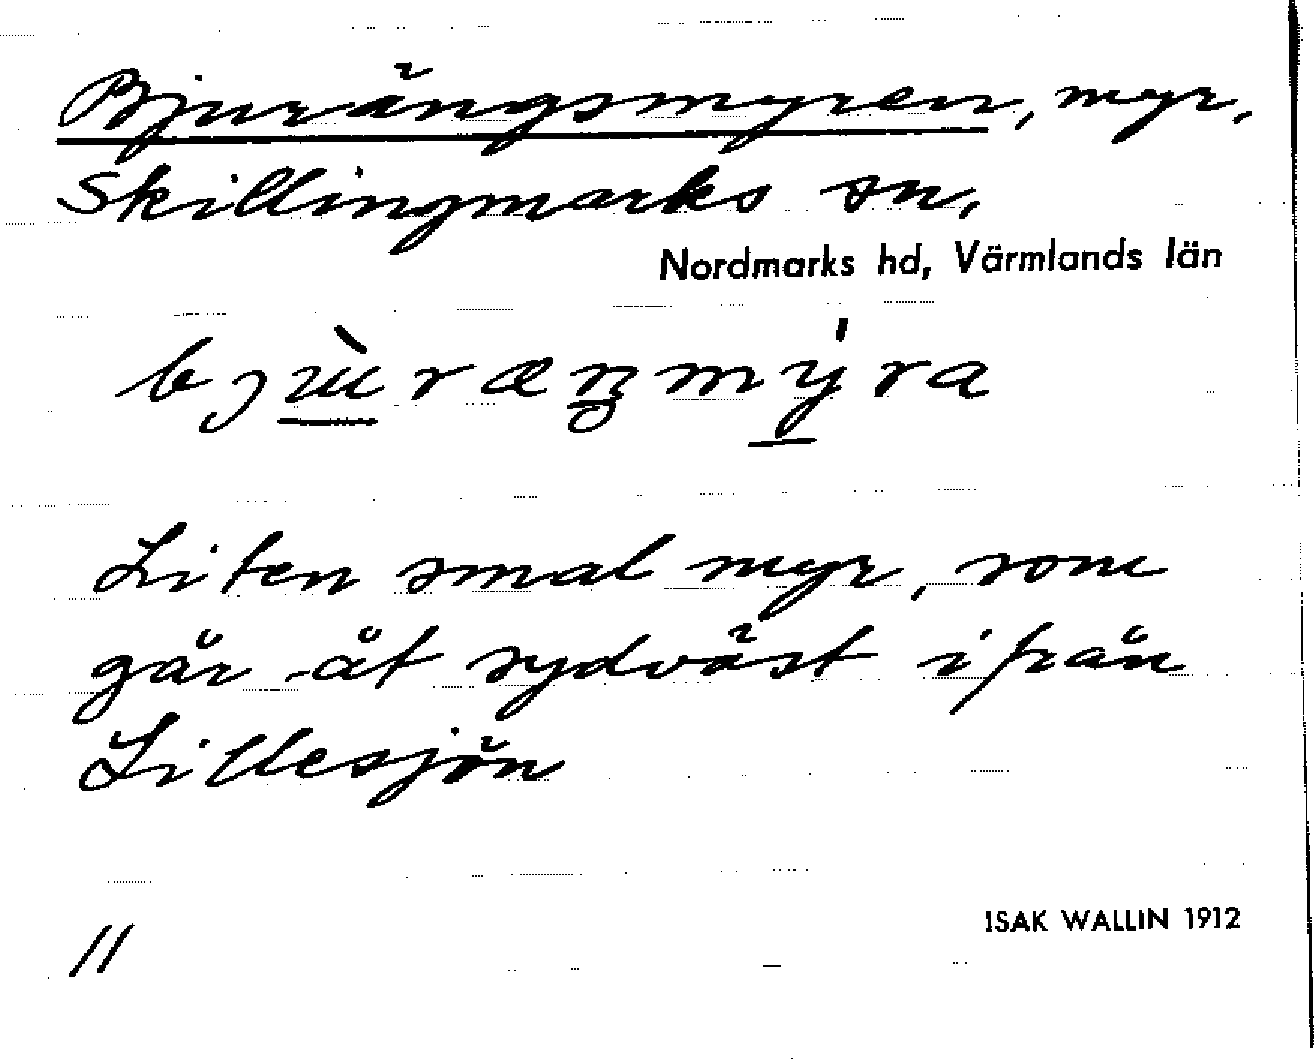 Bjurängsmyren, myr,
Skillingmarks sn,
Nordmarks hd, Värmlands län
bjùræŋmýra
Liten smal myr, som
går åt sydväst ifrån
Lillesjön
11
ISAK WALLIN 1912